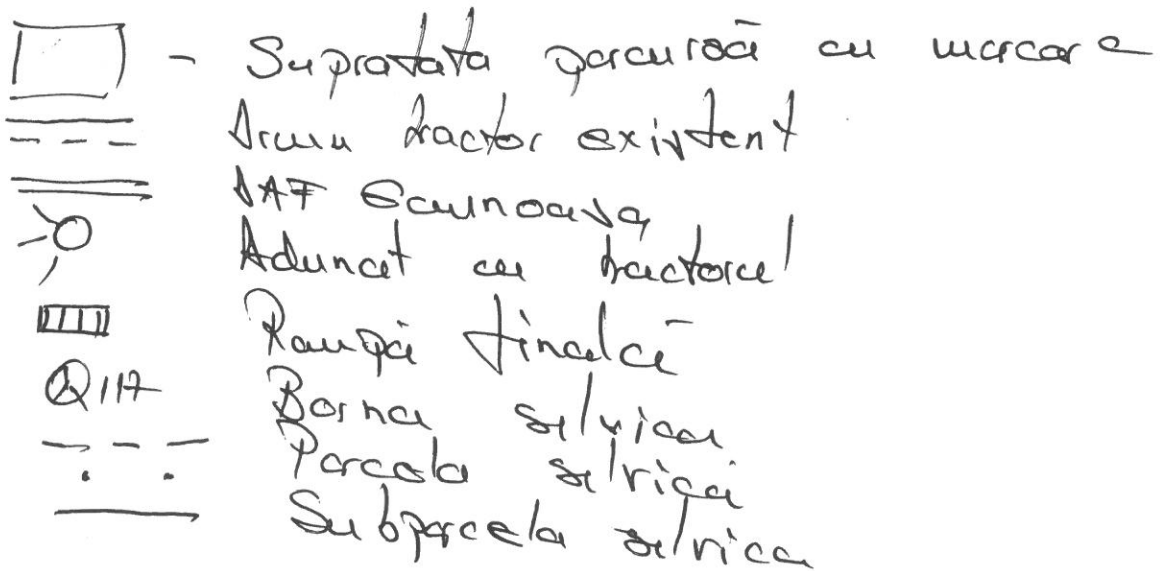 - Suprafata parcursă cu marcare
Drum tractor existent
DAF Scaunoasa
Adunat cu tractorul
Rampă finală
117 Borna silvica
Parcela silvică
Subparcela silvica